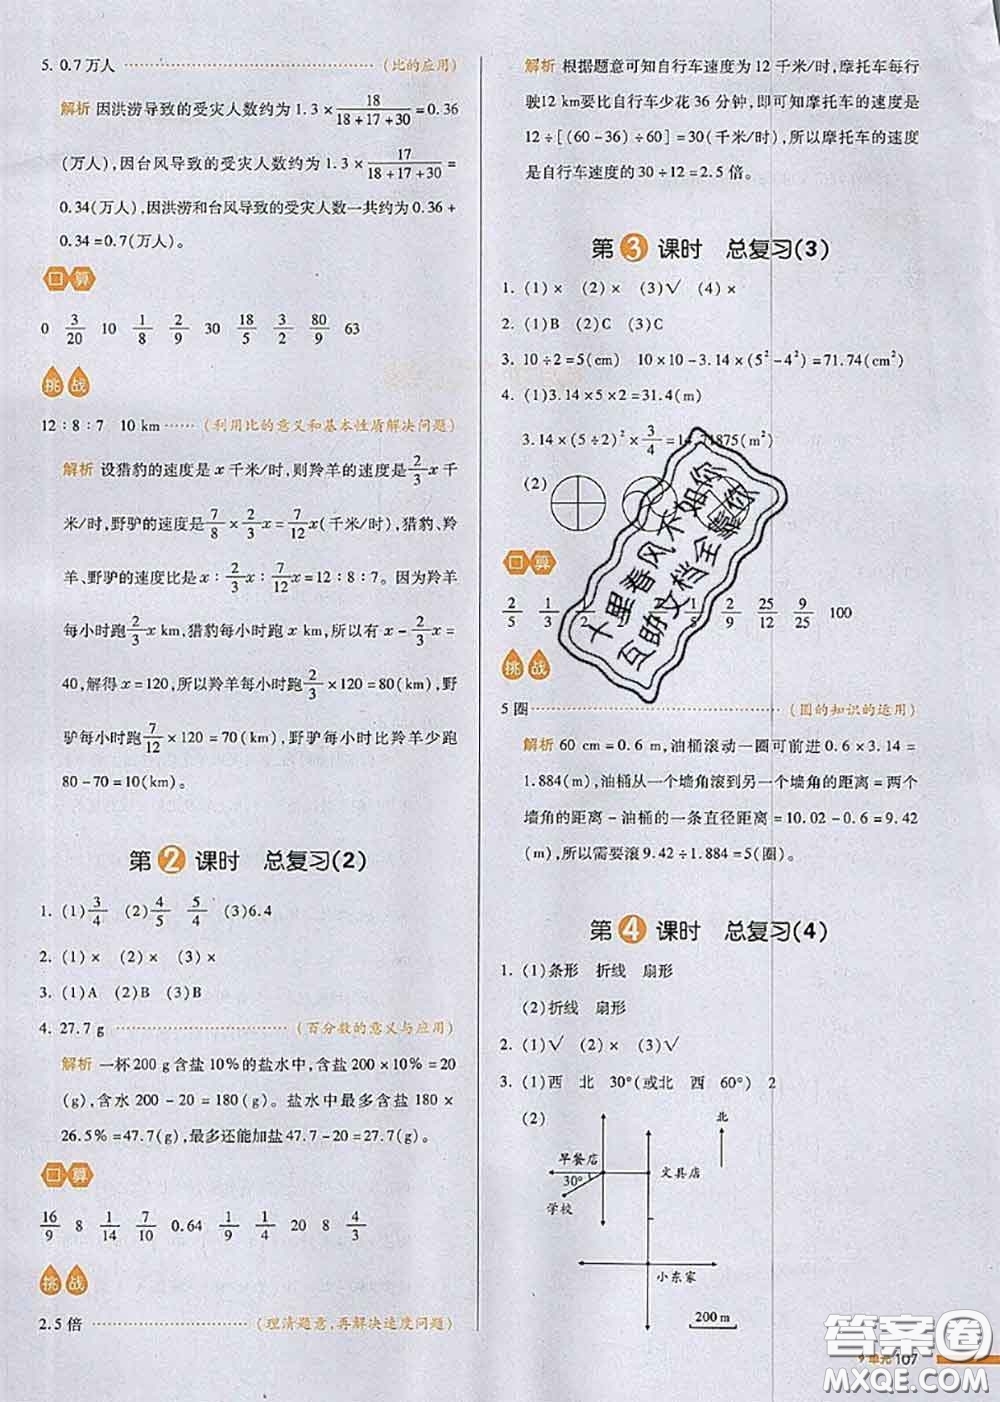 5. 0.7万人 (比的应用)
解析 因洪涝导致的受灾人数约为1.3×18/(18+17+30)=0.36
(万人),因台风导致的受灾人数约为1.3×17/(18+17+30)=
0.34(万人),因洪涝和台风导致的受灾人数一共约为0.36+
0.34=0.7(万人)。
口算
0 3/20 10 1/8 2/9 30 18/5 3/2 80/9 63
挑战
12:8:7 10 km……(利用比的意义和基本性质解决问题)
解析 设猎豹的速度是x千米/时,则羚羊的速度是2/3x千
米/时,野驴的速度是7/8×2/3x=7/12x(千米/时),猎豹、羚
羊、野驴的速度比是x:2/3x:7/12x=12:8:7。因为羚羊
每小时跑2/3x km,猎豹每小时跑x km,所以有x-2/3x=
40,解得x=120,所以羚羊每小时跑2/3×120=80(km),野
驴每小时跑7/12×120=70(km),所以野驴每小时比羚羊少跑
80-70=10(km)。
第2课时 总复习(2)
1. (1)3/4 (2)4/5 5/4 (3)6.4
2. (1)× (2)×
3. (1)A (2)B (3)B
4. 27.7 g (百分数的意义与应用)
解析 一杯200 g含盐10%的盐水中,含盐200×10%=20
(g),含水200-20=180(g)。盐水中最多含盐180×
26.5%=47.7(g),最多还能加盐47.7-20=27.7(g)。
口算
16/9 8 1/14 7/10 0.64 1/9 1/4 20 8 4/3
挑战
2.5倍 (理清题意,再解决速度问题)
解析 根据题意可知自行车速度为12千米/时,摩托车每行
驶12 km要比自行车少花36分钟,即可知摩托车的速度是
12÷[(60-36)÷60]=30(千米/时),所以摩托车的速度
是自行车速度的30÷12=2.5倍。
第3课时 总复习(3)
1. (1)× (2)× (3)√ (4)×
2. (1)B (2)C (3)C
3. 10÷2=5(cm) 10×10-3.14×(5²-4²)=71.74(cm²)
4. (1)3.14×5×2=31.4(m)
3.14×(5÷2)²×3/4=14.71875(m²)
(2)
口算
2/5 1/3 2/9 25/12 9/25 100
挑战
5圈 (圆的知识的运用)
解析 60 cm=0.6 m,油桶滚动一圈可前进0.6×3.14=
1.884(m),油桶从一个墙角滚到另一个墙角的距离=两个
墙角的距离-油桶的一条直径距离=10.02-0.6=9.42
(m),所以需要滚9.42÷1.884=5(圈)。
第4课时 总复习(4)
1. (1)条形 折线 扇形
(2)折线 扇形
2. (1)√ (2)× (3)√
3. (1)西 北 30°(或北 西 60°) 2
(2)
北
早餐店
文具店
30°
学校
小东家
200 m
9单元 107
十里春风不如你
互助文档全靠你
答案圈
MXQE.COM